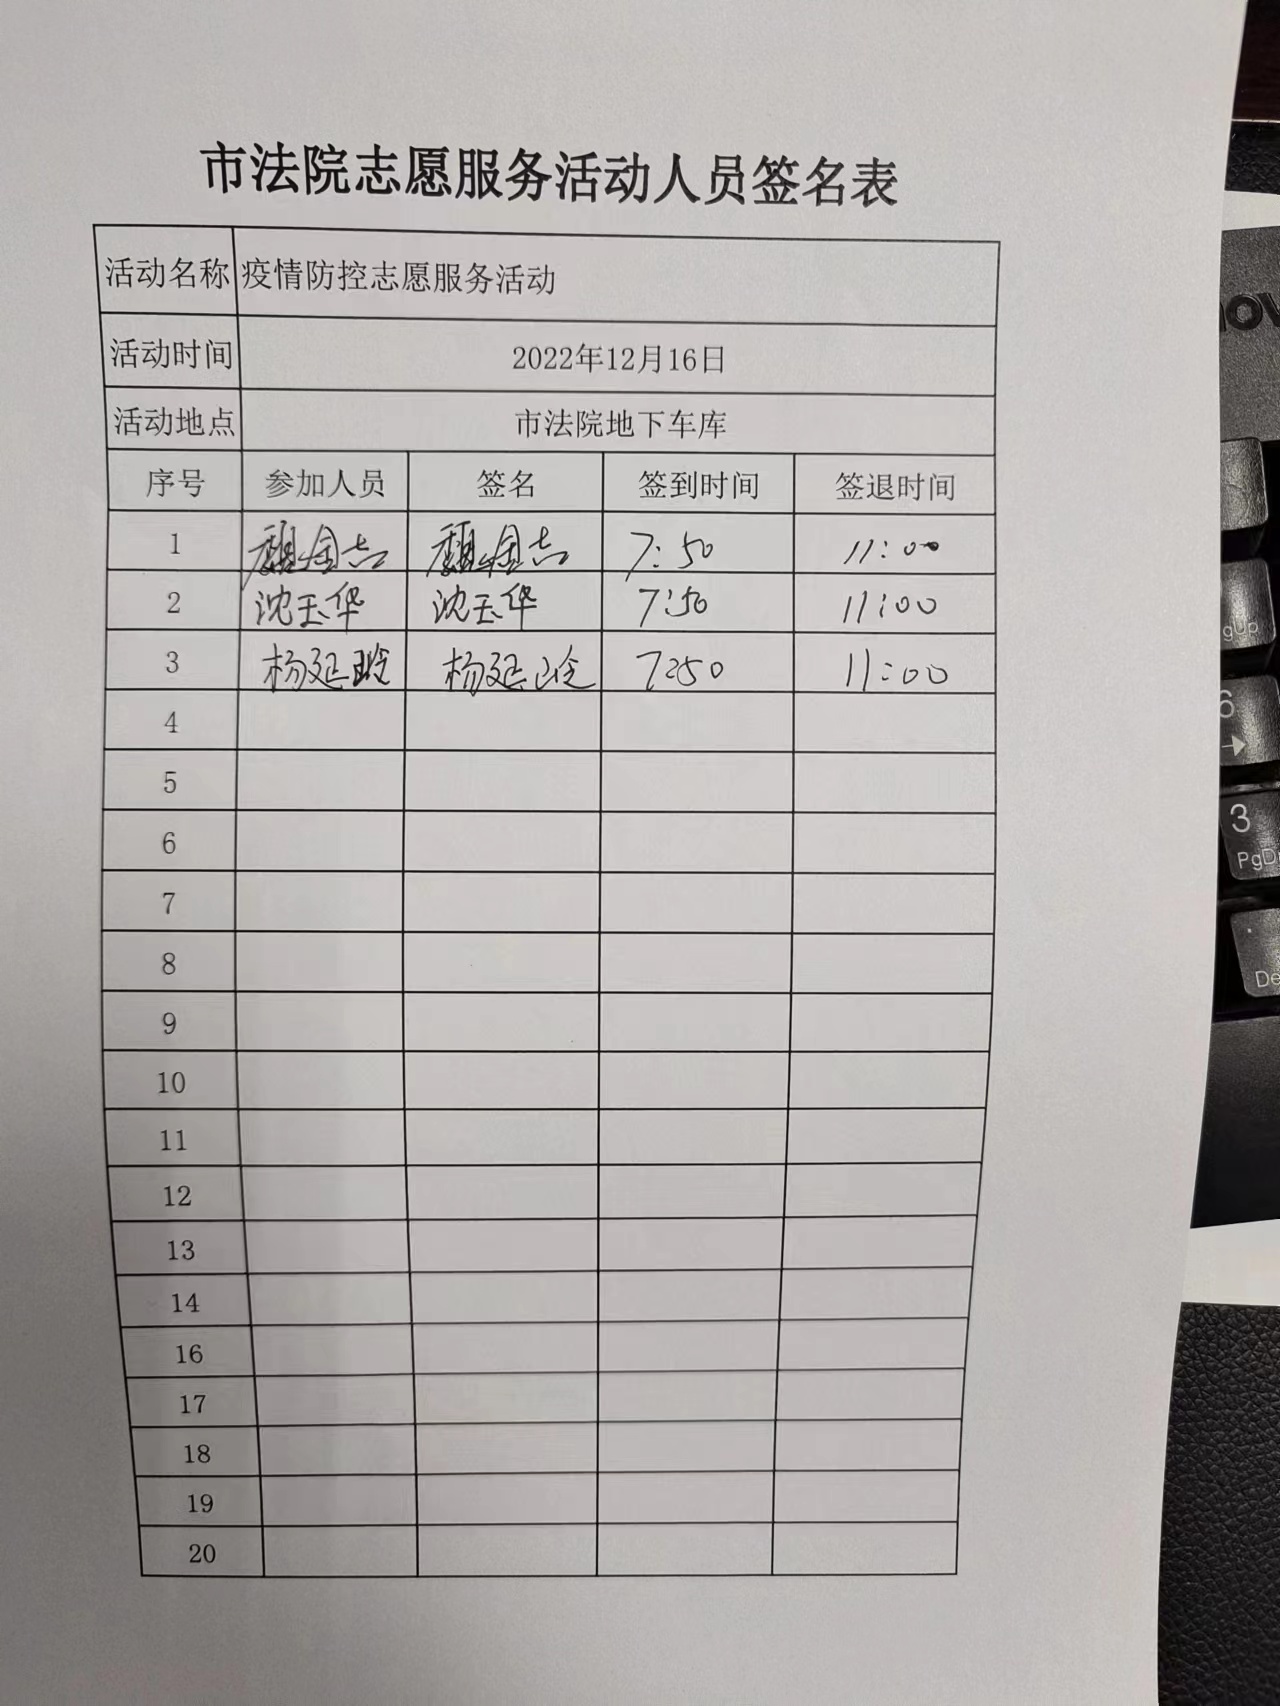 市法院志愿服务活动人员签名表
活动名称 疫情防控志愿服务活动
活动时间 2022年12月16日
活动地点 市法院地下车库
序号 参加人员 签名 签到时间 签退时间
1 魏金志 魏金志 7:50 11:00
2 沈玉华 沈玉华 7:50 11:00
3 杨延 杨延 7:50 11:00
4
5
6
7
8
9
10
11
12
13
14
16
17
18
19
20
6
3
PgD
De